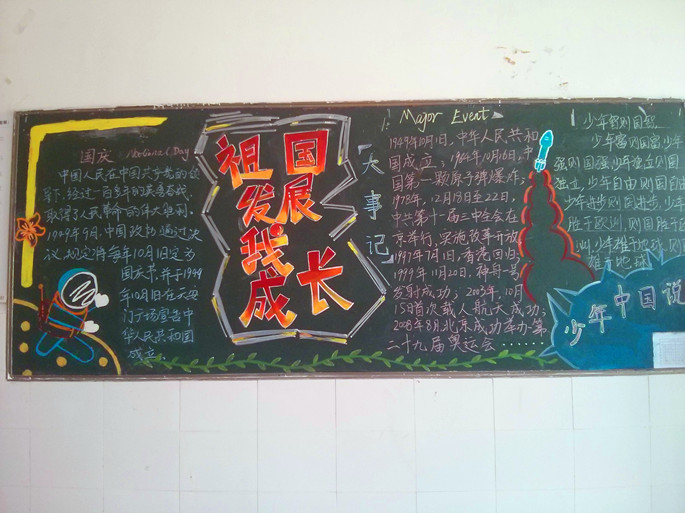 国庆 National Day
中国人民在中国共产党的领
导下,经过一百多年的英勇奋战,
取得了人民革命的伟大胜利。
1949年9月,中国政协通过决
议,规定将每年10月1日定为
国庆节,并于1949
年10月1日在天安
门广场宣告中
华人民共和国
成立。
祖国
发展
我成长
大事记
Major Event
1949年10月1日,中华人民共和
国成立;1964年10月16日,中
国第一颗原子弹爆炸;
1978年,12月18日至22日,
中共第十一届三中全会在
京举行,实施改革开放
1997年7月1日,香港回归;
1999年11月20日,神舟一号
发射成功;2003年,10月
15日首次载人航天成功;
2008年8月,北京成功举办第
二十九届奥运会......
少年智则国智
少年富则国富,少年
强则国强,少年独立则国
独立,少年自由则国自由
少年进步则国进步,少年
胜于欧洲,则国胜于欧
洲,少年雄于地球,则国
雄于地球
少年中国说